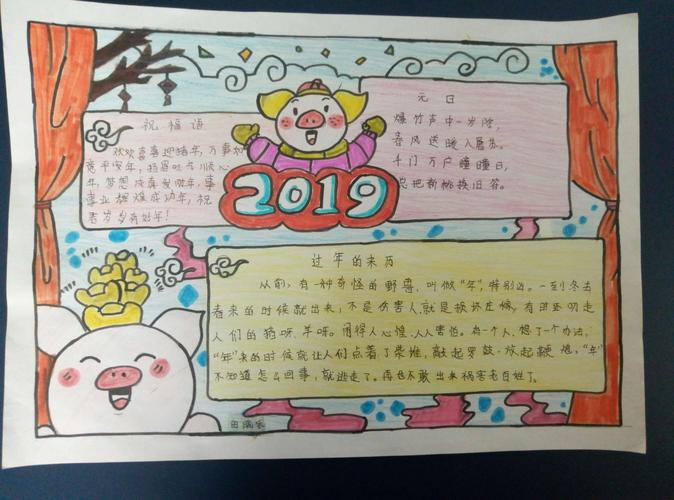 祝福语
欢欢喜喜迎猪年,万事如
意平安年,扬眉吐气顺心
年,梦想成真发财年,事
事业辉煌成功年,祝
君岁岁有好年!
2019
元日
爆竹声中一岁除,
春风送暖入屠苏。
千门万户瞳瞳日,
总把新桃换旧符。
过年的来历
从前,有一种奇怪的野兽,叫做“年”,特别凶。一到冬去
春来的时候就出来,不是伤害人,就是损坏庄稼,有时还叨走
人们的猪呀、羊呀。闹得人心惶,人人害怕。有一个人,想了一个办法,
“年”来的时候就让人们点着了柴堆,敲起罗鼓,放起鞭炮,“年”
不知道怎么回事,就逃走了。再也不敢出来祸害老百姓了。
田